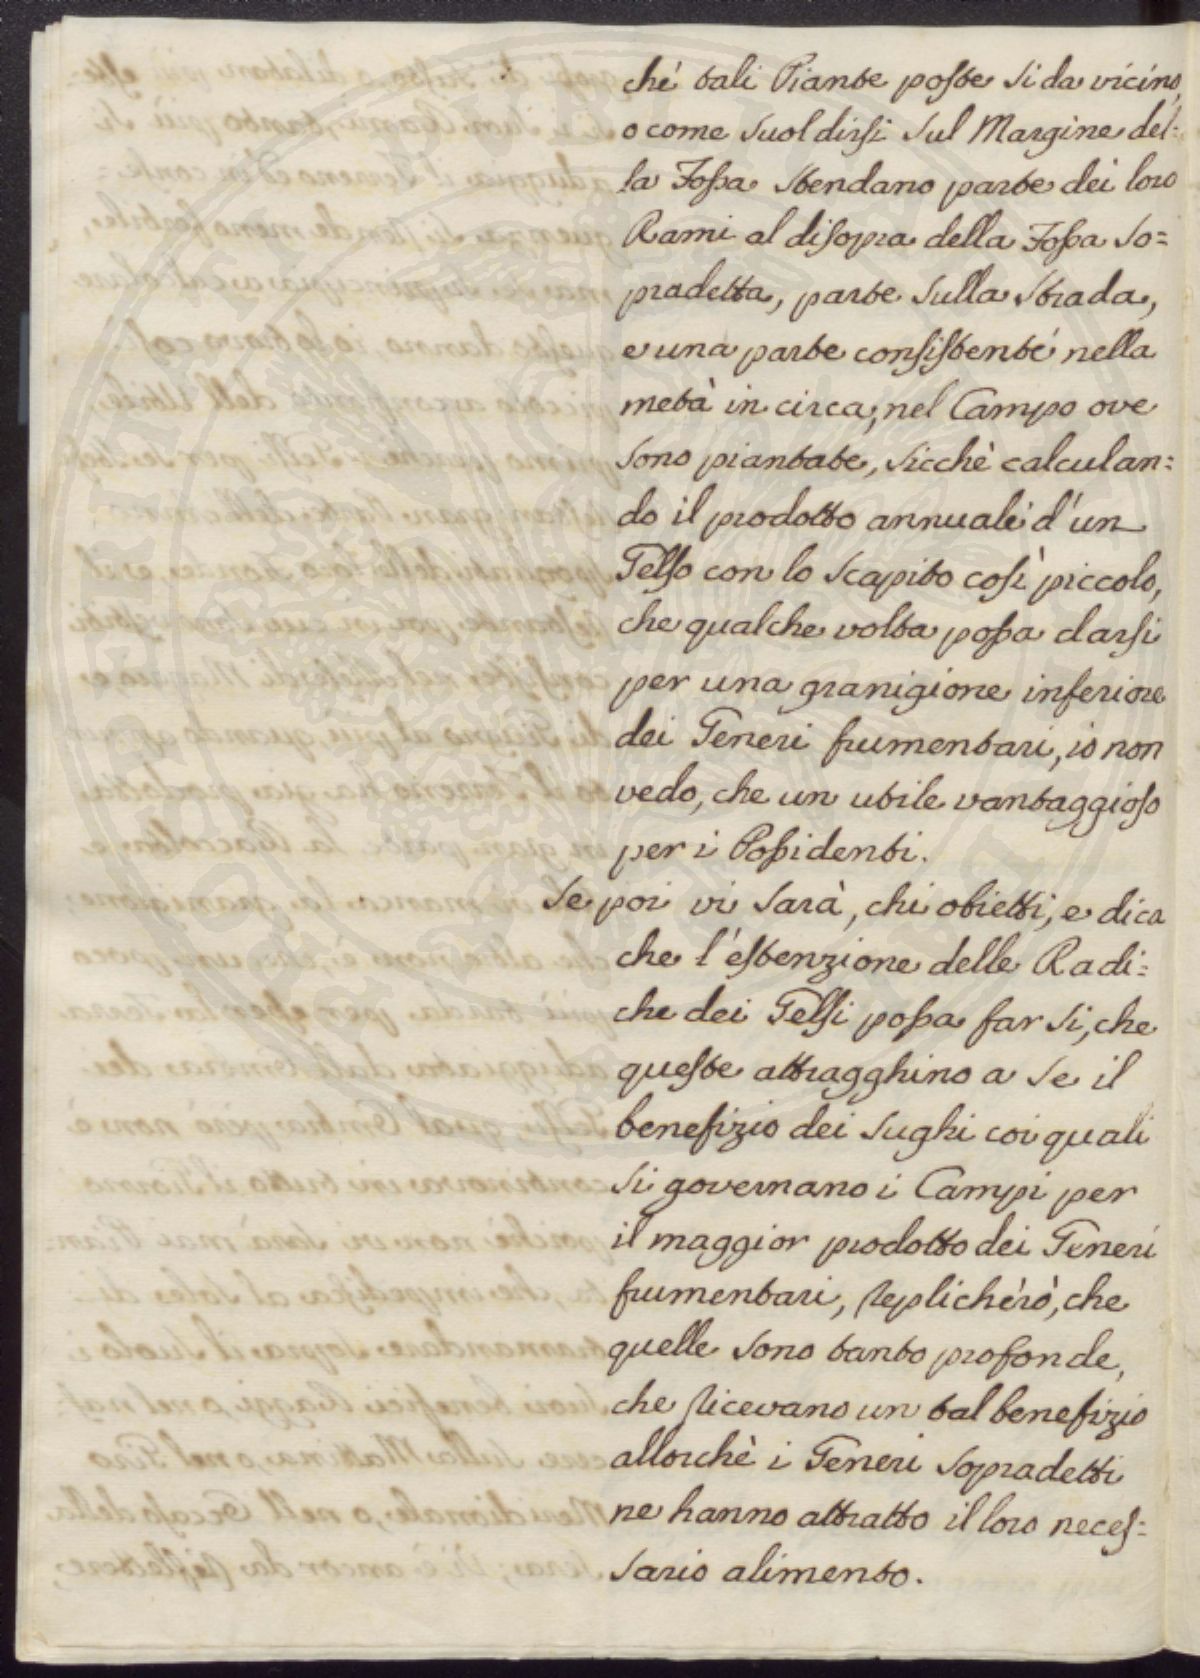 chè tali Piante poste si da vicino,
o come suol dirsi sul Margine del=
la Fossa stendano parte dei loro
Rami al disopra della Fossa so=
pradetta, parte sulla strada,
e una parte consistente nella
metà in circa, nel Campo ove
sono piantate, sicchè calculan=
do il prodotto annuale d'un
Gelso con lo scapito così piccolo,
che qualche volta possa darsi
per una granigione inferiore
dei Generi frumentari, io non
vedo, che un utile vantaggioso
per i Possidenti.
Se poi vi sarà, chi obietti, e dica
che l'estenzione delle Radi=
che dei Gelsi possa far si, che
queste attragghino a se il
benefizio dei sughi coi quali
si governano i Campi per
il maggior prodotto dei Generi
frumentari, replicherò, che
quelle sono tanto profonde,
che ricevano un tal benefizio
allorchè i Generi sopradetti
ne hanno attratto il loro neces=
sario alimento.